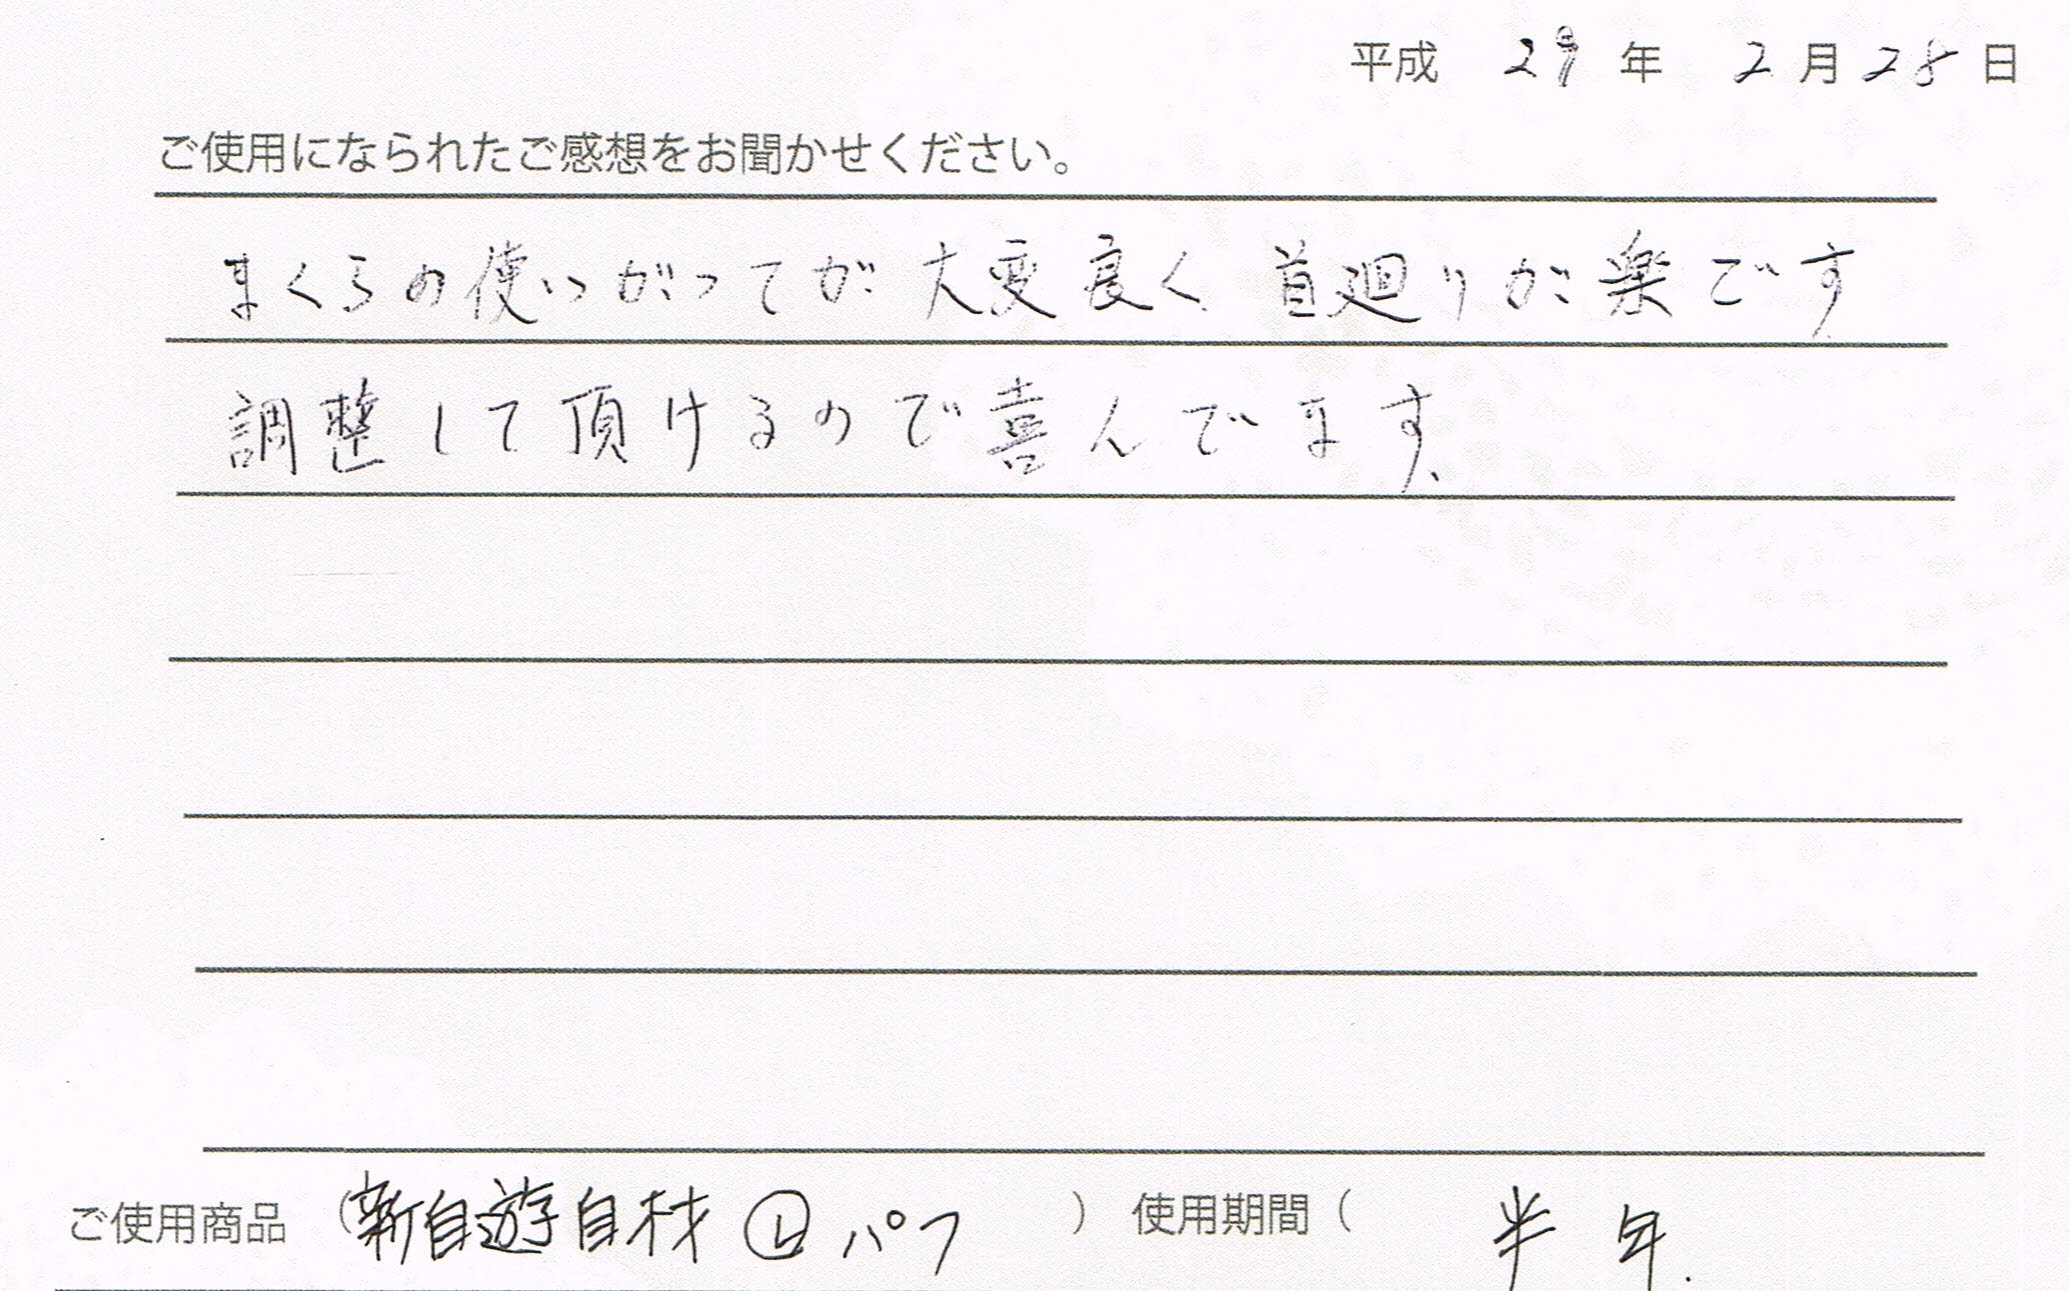 平成 29 年 2 月 28 日
ご使用になられたご感想をお聞かせください。
まくらの使いがってが大変良く 首廻りが楽です
調整して頂けるので喜んでます、
ご使用商品 (新自遊自材 Ⓛ パフ ) 使用期間 ( 半年.